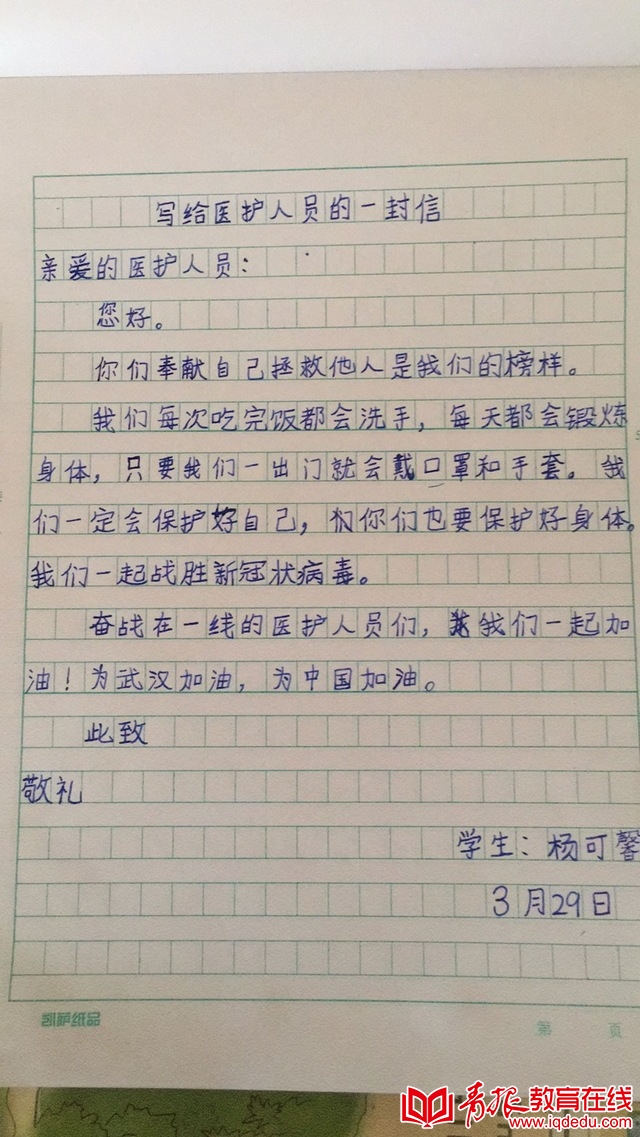 写给医护人员的一封信
亲爱的医护人员：
您好。
你们奉献自己拯救他人是我们的榜样。
我们每次吃完饭都会洗手，每天都会锻炼
身体，只要我们一出门就会戴口罩和手套。我
们一定会保护好自己，你们也要保护好身体。
我们一起战胜新冠状病毒。
奋战在一线的医护人员们，我们一起加
油！为武汉加油，为中国加油。
此致
敬礼
学生：杨可馨
3月29日
凯萨纸品
第 页
青报教育在线
www.iqdedu.com